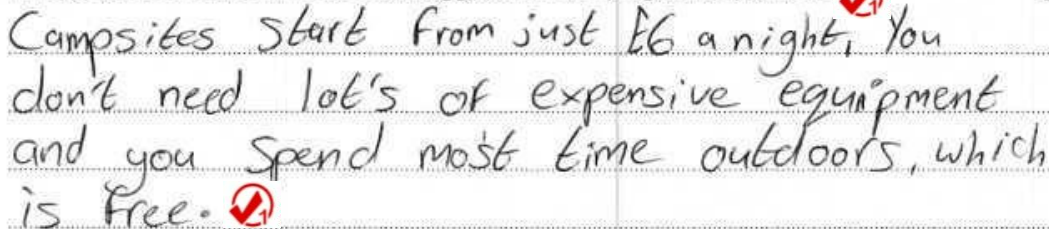 Campsites start from just £6 a night, You
don't need lot's of expensive equipment
and you spend most time outdoors, which
is free.